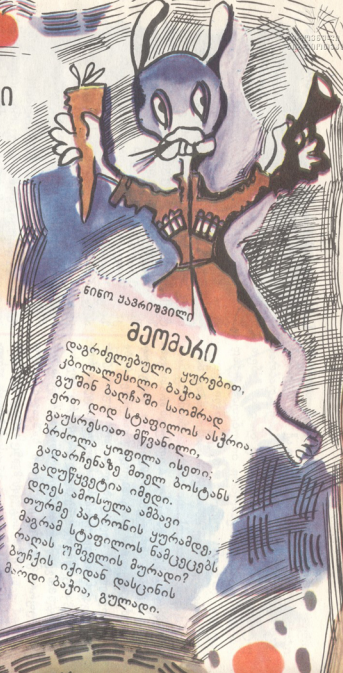 ი
ნინო ყავრიშვილი
მეომარი
დაგრძელებული ყურებით,
კბილალესილი ბაჭია
გუშინ ბაღჩაში საომრად
ერთ დიდ სტაფილოს ასჭრია.
გაუსრესიათ მწვანილი,
ბრძოლა ყოფილა ისეთი;
გადარჩენაზე მთელ ბოსტანს
გადუწყვეტია იმედი.
დღეს ამოსულა ამბავი
თურმე პატრონის ყურამდე,
მაგრამ სტაფილოს ნამცეცებს
რაღას უშველის მურადი?
ბუჩქის იქიდან დასცინის
მარდი ბაჭია, გულადი.